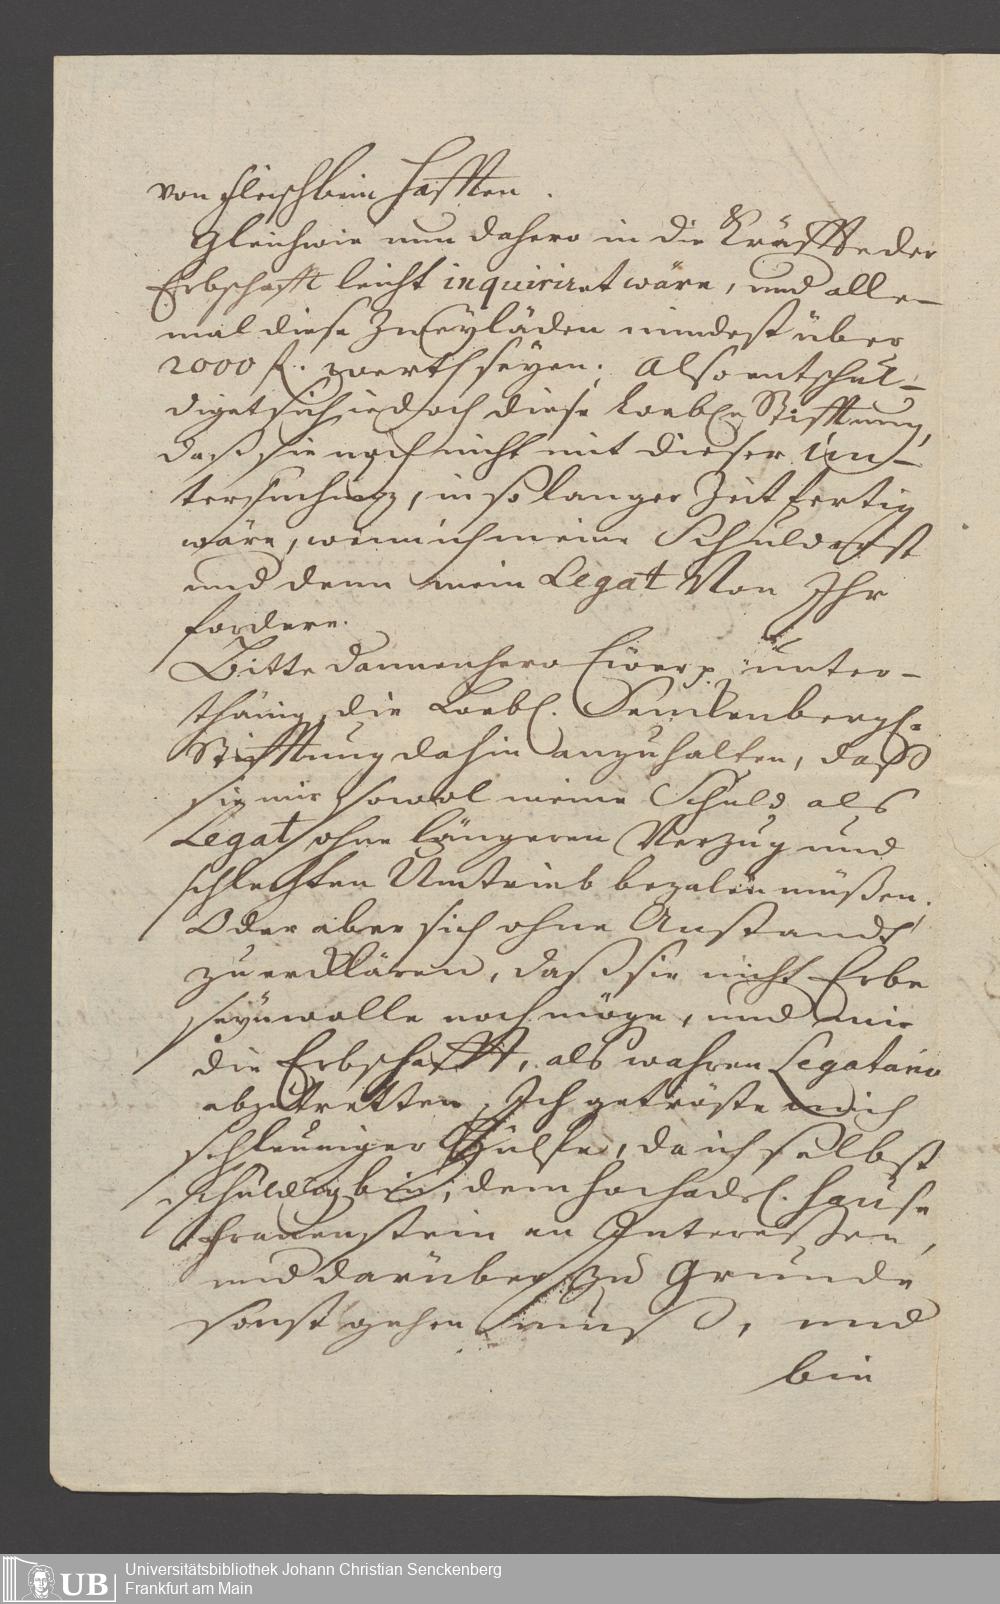 von Fleischbein hafften.
Gleichwie nun dahero in die Kräffte der
Erbschafft leicht inquiriret wäre, und alle-
mal diese Zwey läden mindest über
2000 f. werth seyen; Also entschul-
diget sich iedoch diese Loebl. Stifftung,
daß sie noch nicht mit dieser Un-
tersuchung, in so langer Zeit fertig
wäre, wenn ich meine Schuld erst
und denn mein Legat Von Ihr
fordere.
Bitte dannenhero Euer p. unter-
thänig, die Loebl. Senckenbergl.
Stifftung dahin anzuhalten, daß
sie mir sowol meine Schuld als
Legat ohne längeren Verzug und
schlechten Umtrieb bezalen müßen.
Oder aber sich ohne Anstandt
zu erklären, daß sie nicht Erbe
seyn wolle noch möge, und mir
die Erbschafft, als wahren Legatario
abzutretten. Ich getröste mich
schleuniger Hülfe, da ich selbst
schuldig bin, dem hochadl. Hause
Frauenstein an Interessen,
und darüber zu Grunde
sonst gehen muß, und
bin
Universitätsbibliothek Johann Christian Senckenberg
Frankfurt am Main
UB